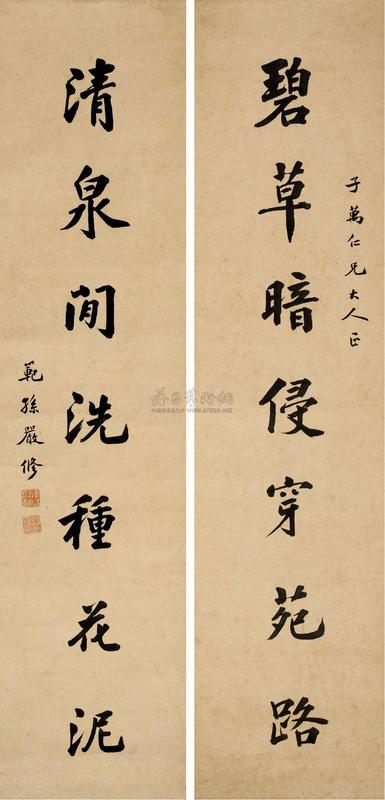 子萬仁兄大人正
碧草暗侵穿苑路
清泉閒洗種花泥
範孫嚴修
www.artron.net